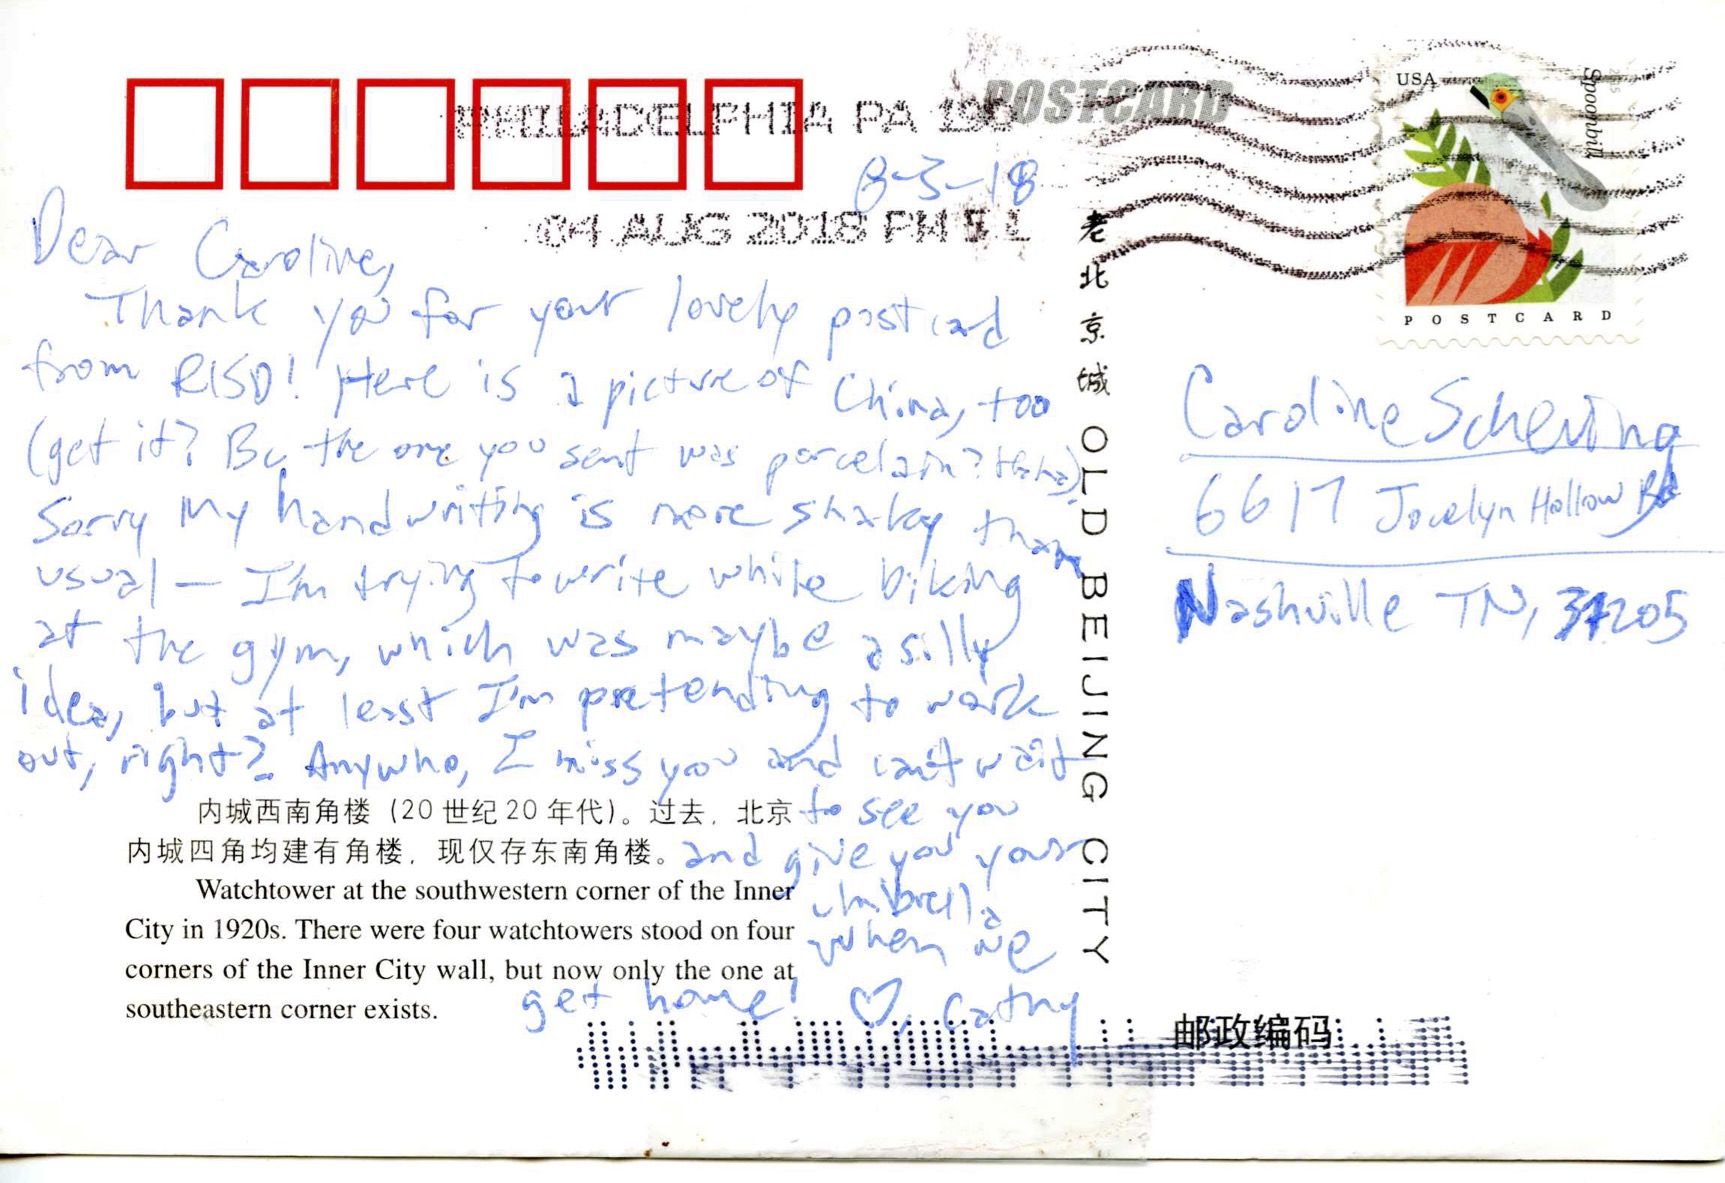 POSTCARD
PHILADELPHIA PA 190
8-3-18
04 AUG 2018 PM 5 L
USA
Spoonbill
POSTCARD
老北京城 OLD BEIJING CITY
Dear Caroline,
Thank you for your lovely postcard
from RISD! Here is a picture of China, too
(get it? Bc the one you sent was porcelain? Haha)
Sorry my handwriting is more shaky than
usual — I'm trying to write while biking
at the gym, which was maybe a silly
idea, but at least I'm pretending to work
out, right? Anywho, I miss you and can't wait
to see you
and give you your
umbrella
when we
get home! ♡, Cathy
内城西南角楼（20世纪20年代）。过去，北京
内城四角均建有角楼，现仅存东南角楼。
Watchtower at the southwestern corner of the Inner
City in 1920s. There were four watchtowers stood on four
corners of the Inner City wall, but now only the one at
southeastern corner exists.
Caroline
6617 Jocelyn Hollow Rd
Nashville TN, 37205
邮政编码